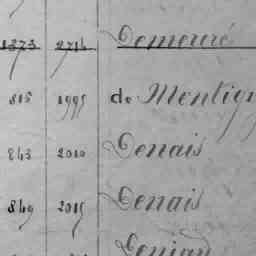 1373 2714 Demeuré
815 1995 de Montign
843 2010 Denais
849 2015 Denais